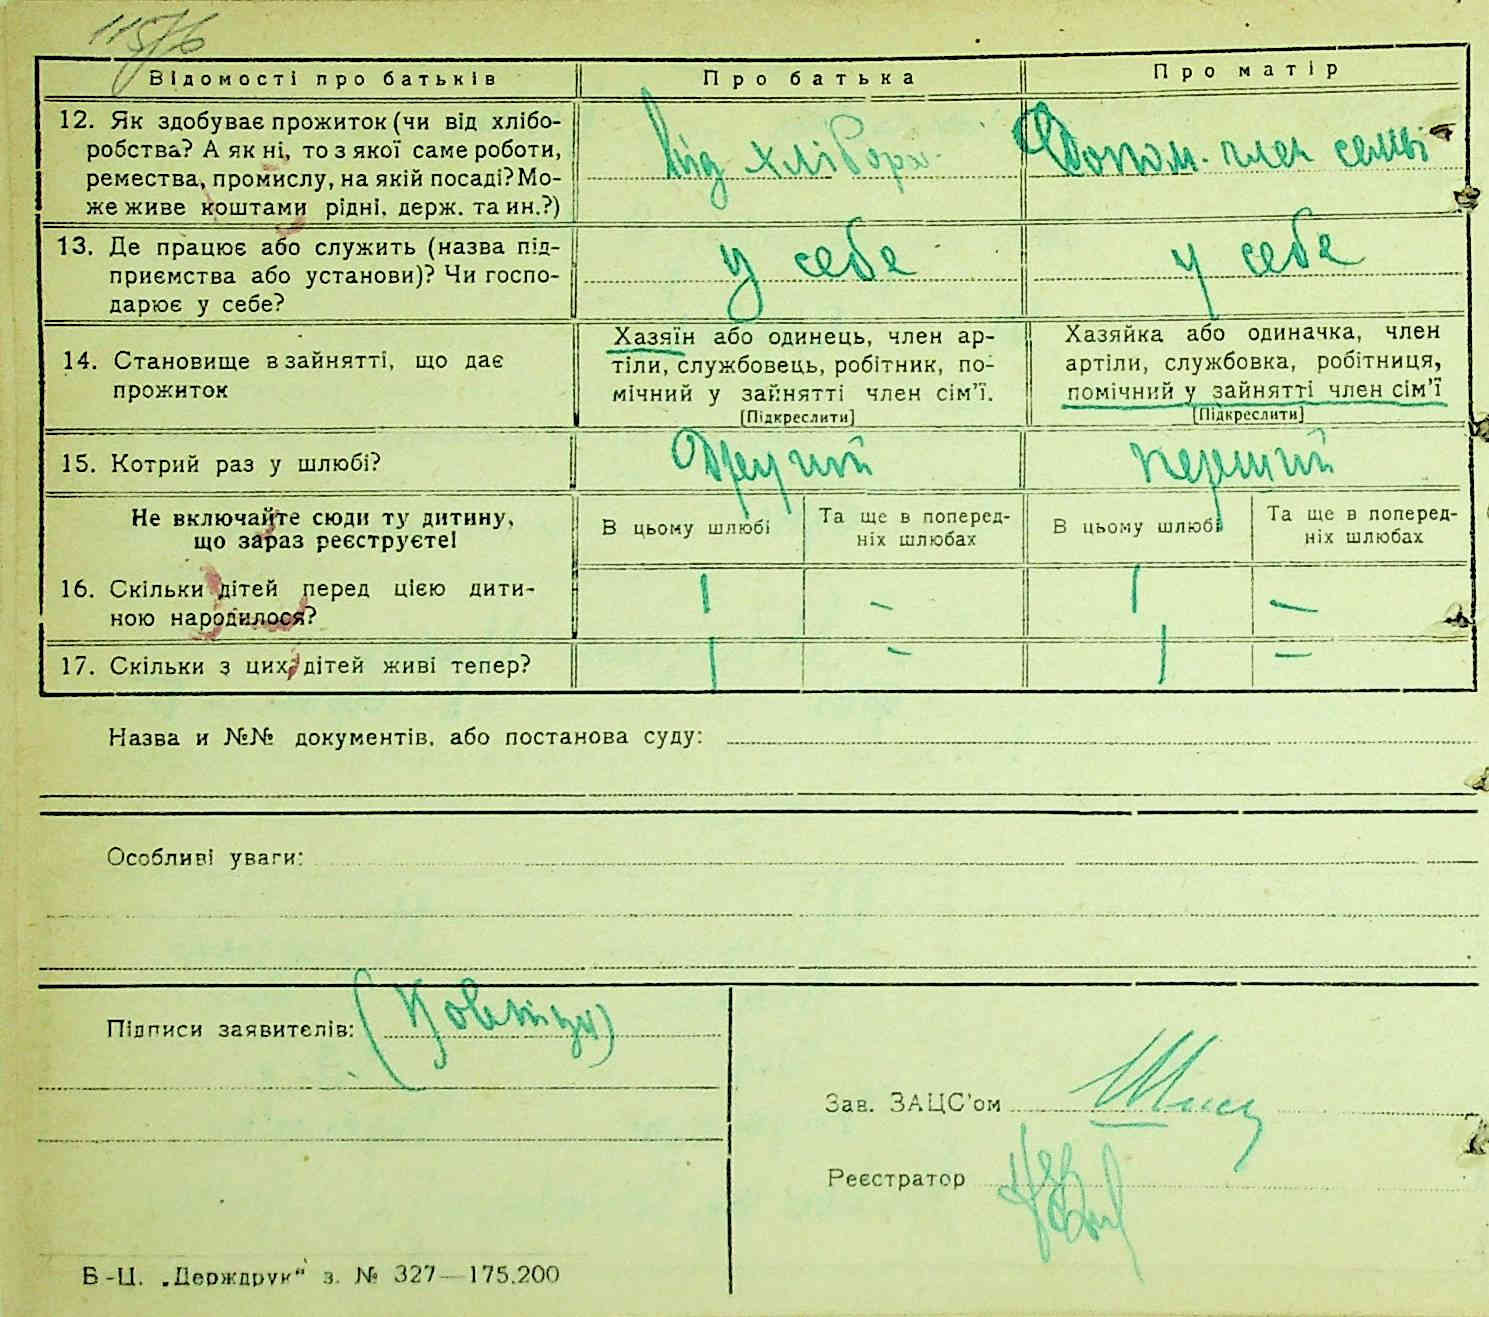 115/6
Відомості про батьків Про батька Про матір
12. Як здобуває прожиток (чи від хлібо-
робства? А як ні, то з якої саме роботи,
ремества, промислу, на якій посаді? Мо-
же живе коштами рідні, держ. та ин.?)
від хлібороб.
Допом. член семьі
13. Де працює або служить (назва під-
приємства або установи)? Чи госпо-
дарює у себе?
у себе
у себе
14. Становище в зайнятті, що дає
прожиток
Хазяїн або одинець, член ар-
тіли, службовець, робітник, по-
мічний у зайнятті член сім'ї.
[Підкреслити]
Хазяйка або одиначка, член
артіли, службовка, робітниця,
помічний у зайнятті член сім'ї
[Підкреслити]
15. Котрий раз у шлюбі?
Другий
перший
Не включайте сюди ту дитину,
що зараз реєструєте!
В цьому шлюбі
Та ще в поперед-
ніх шлюбах
В цьому шлюбі
Та ще в поперед-
ніх шлюбах
16. Скільки дітей перед цією дити-
ною народилося?
1 - 1 -
17. Скільки з цих дітей живі тепер?
1 - 1 -
Назва и №№ документів, або постанова суду:
Особливі уваги:
Підписи заявителів:
Зав. ЗАЦС'ом
Реєстратор
Б-Ц. „Держдрук“ з. № 327—175.200